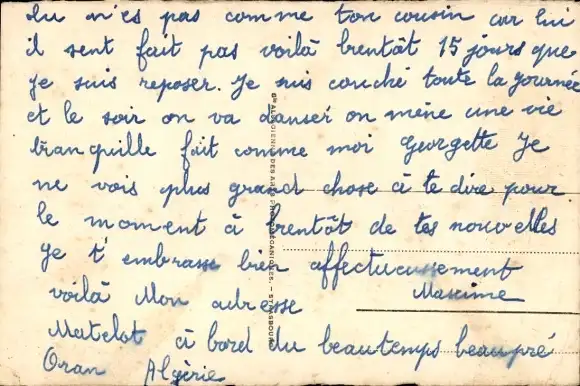 tu n'es pas comme ton cousin car lui
il sent fait pas voilà bientôt 15 jours que
je suis reposer. Je suis couché toute la journée
et le soir on va danser on mène une vie
tranquille fait comme moi Georgette Je
ne vois plus grand chose à te dire pour
le moment à bientôt de tes nouvelles
Je t'embrasse bien affectueussement
Maxime
voilà Mon adresse
Matelot à bord du beautemps beaupré
Oran Algérie
Cie ALSACIENNE DES ARTS PHOTOMÉCANIQUES. - STRASBOURG